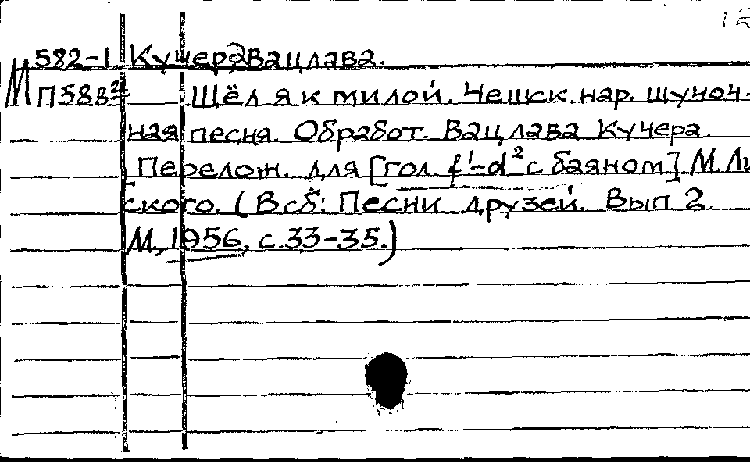 М 582-1 Кучера Вацлава.
П588² Шёл я к милой. Чешск. нар. шуточ-
ная песня. Обработ. Вацлава Кучера.
Перелож. для [гол. f¹-d² с баяном] М. Ли
ского. (В сб: Песни друзей. Вып 2.
М., 1956, с. 33-35.)